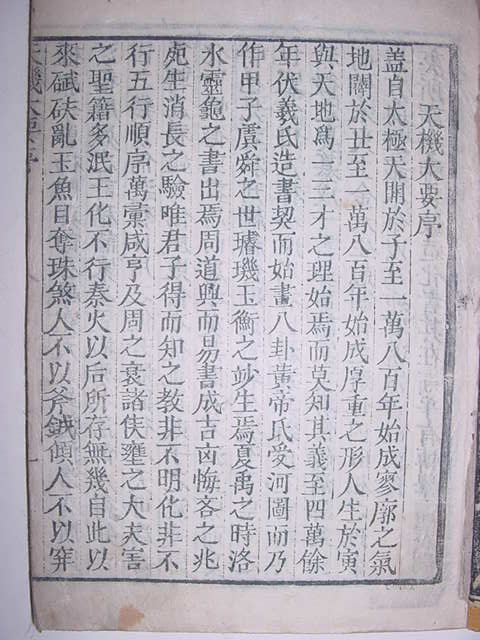 天機大要序
盖自太極天開於子至一萬八百年始成寥廓之氣
地闢於丑至一萬八百年始成厚重之形人生於寅
與天地爲一三才之理始焉而莫知其義至四萬餘
年伏羲氏造書契而始畫八卦黃帝氏受河圖而乃
作甲子虞舜之世璿璣玉衡之妙生焉夏禹之時洛
水靈龜之書出焉周道興而易書成吉凶悔吝之兆
死生消長之驗唯君子得而知之教非不明化非不
行五行順序萬彙咸亨及周之衰諸侯壅之大夫害
之聖籍多泯王化不行秦火以后所存無幾自此以
來碔砆亂玉魚目奪珠煞人不以斧鉞傾人不以穽
天機大要序